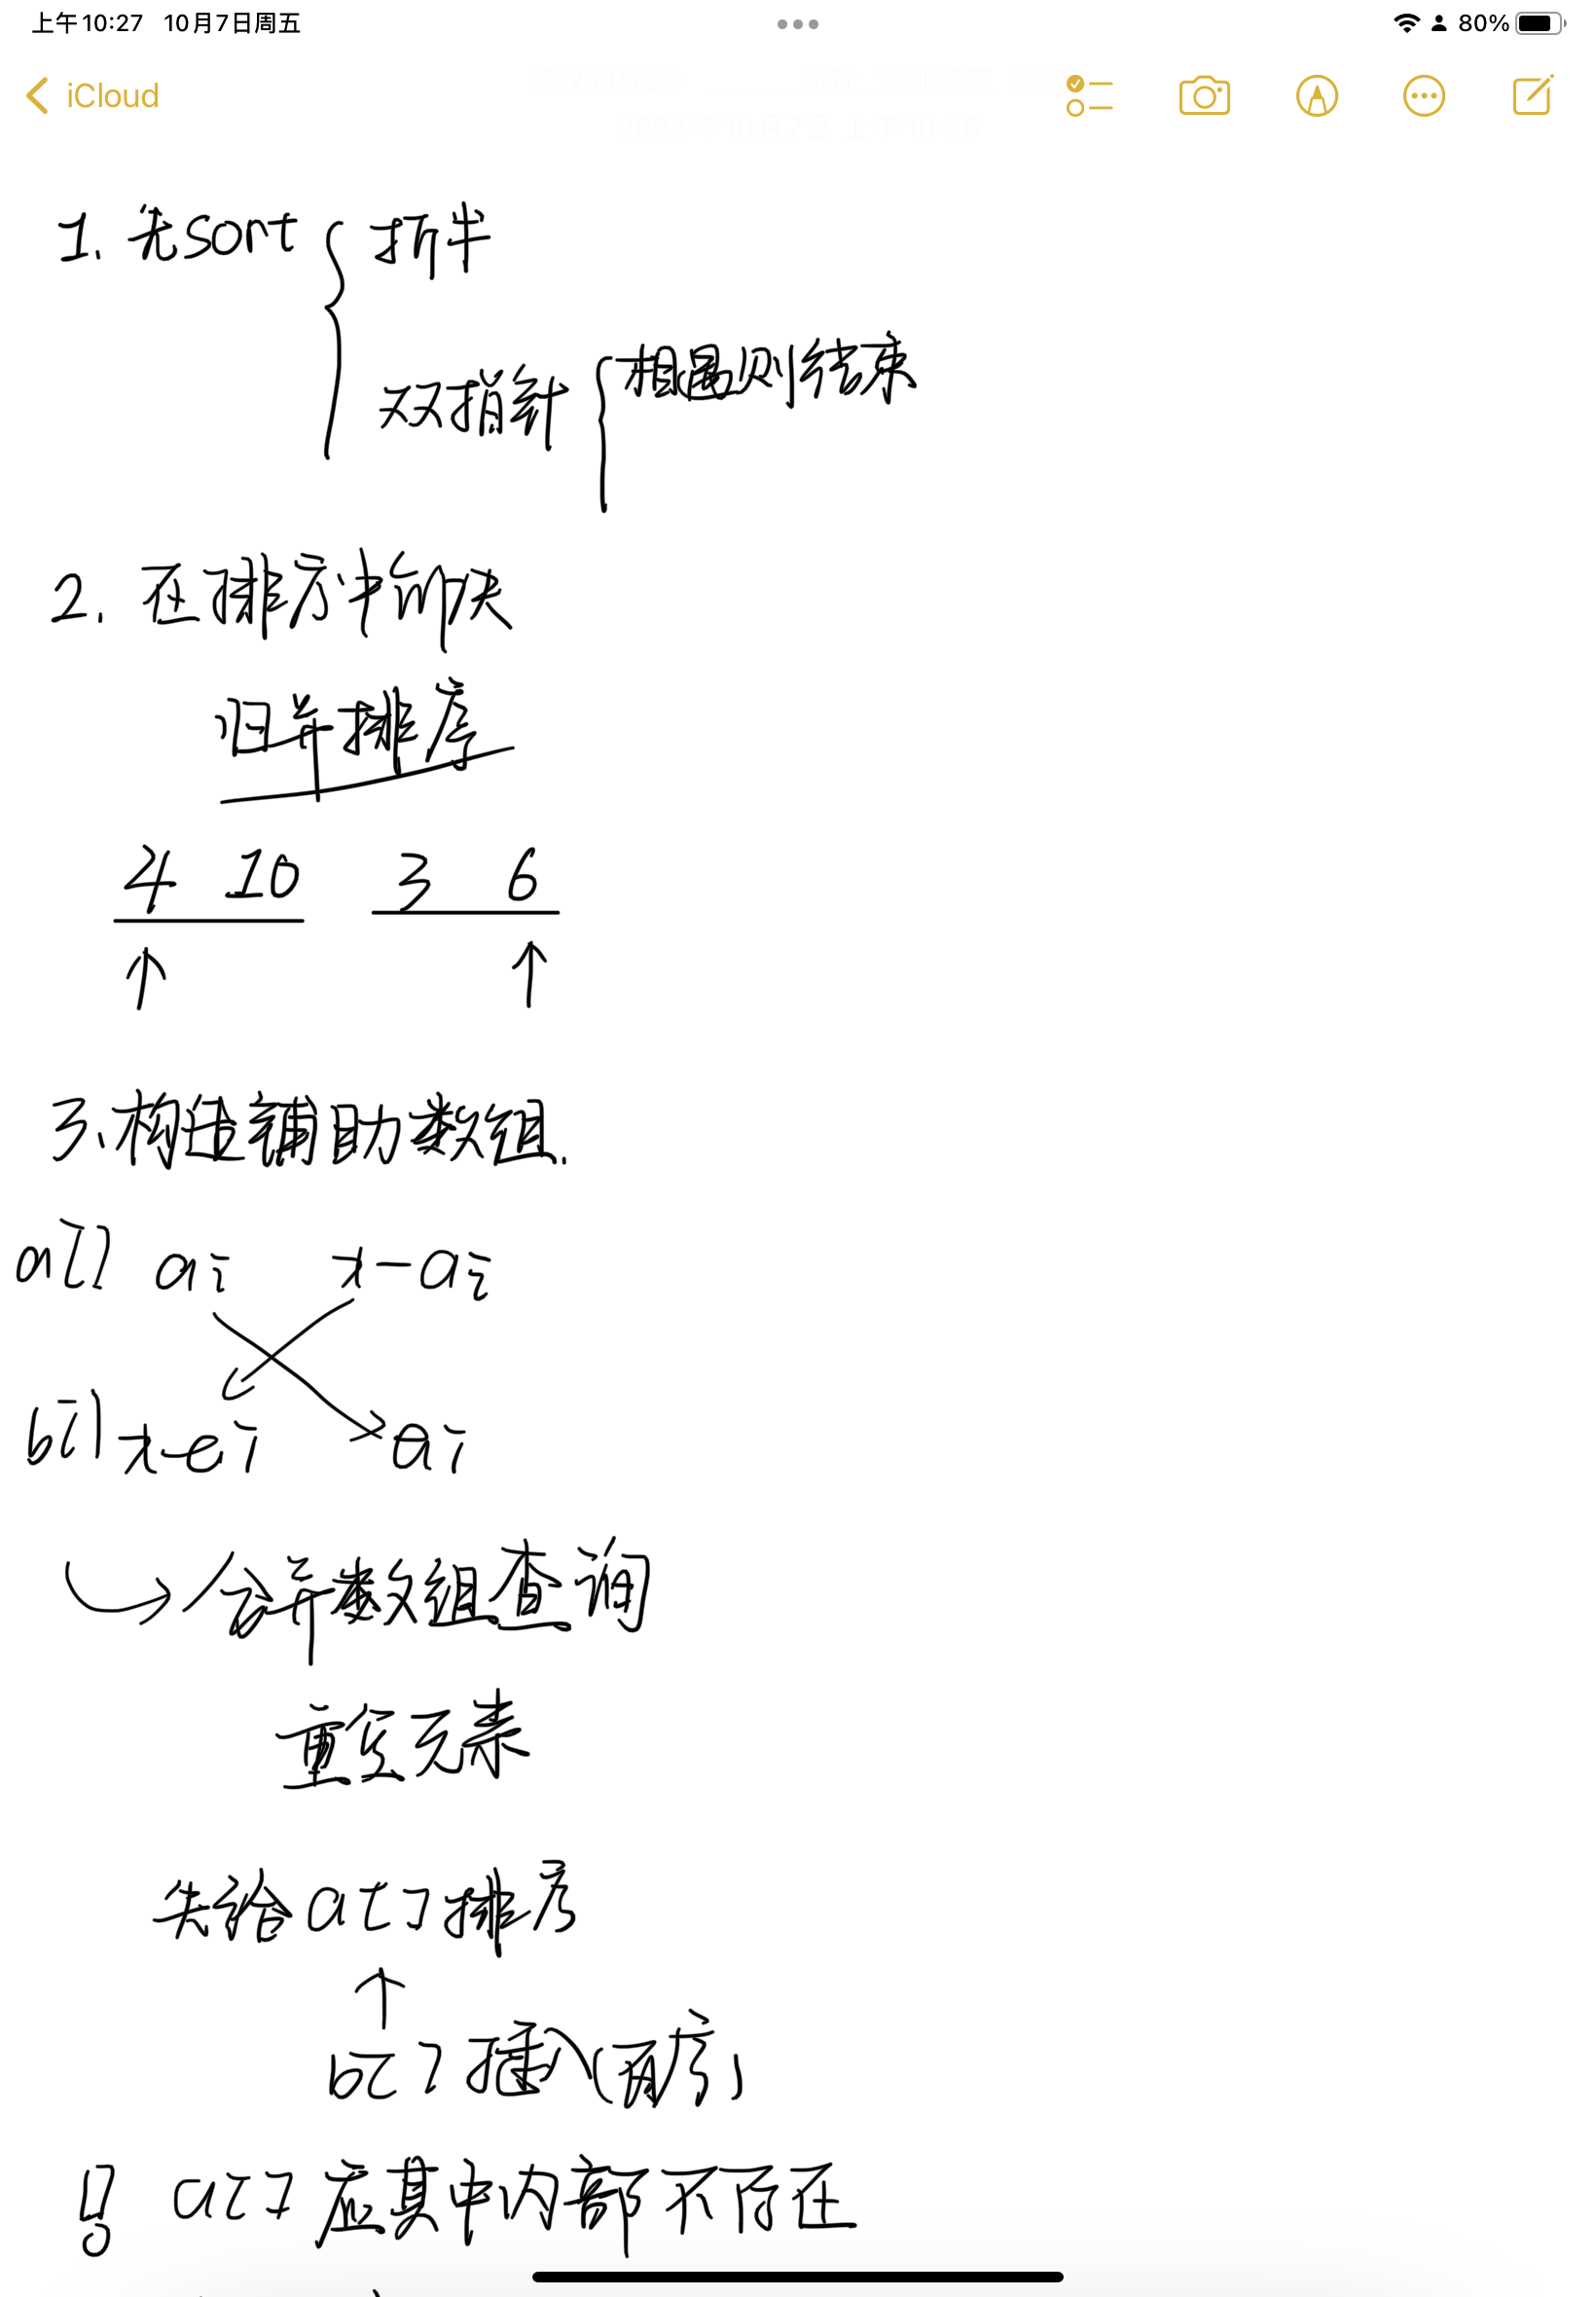 上午10:27 10月7日周五
80%
iCloud
1. 先sort
折半
双指针
相遇则结束
2. 在排序中解决
归并排序
4 10 3 6
3、构造辅助数组.
a[] ai x-ai
b[] x-ai ai
合并数组查询
重复元素
先给a[]排序
b[]插入(有序)
a[]应其中内部不存在